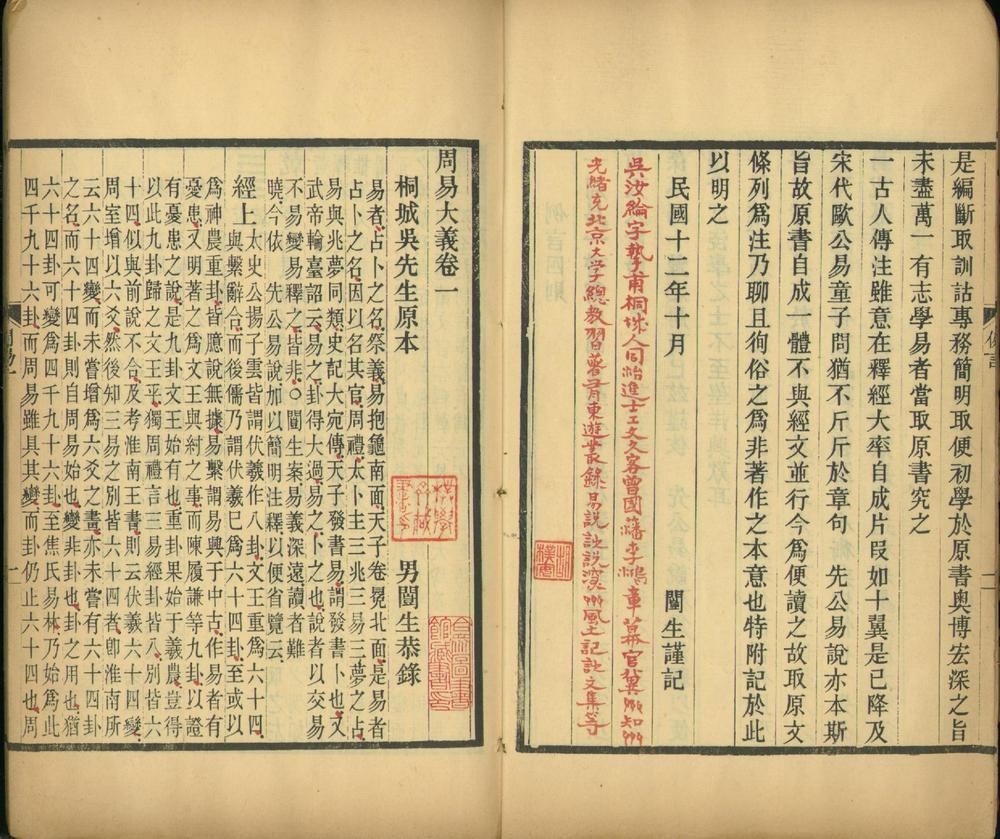 是編斷取訓詁專務簡明取便初學於原書奧博宏深之旨
未盡萬一有志學易者當取原書究之
一古人傳注雖意在釋經大率自成片段如十翼是已降及
宋代歐公易童子問猶不斤斤於章句　先公易說亦本斯
旨故原書自成一體不與經文並行今爲便讀之故取原文
條列爲注乃聊且徇俗之爲非著作之本意也特附記於此
以明之
民國十二年十月　闓生謹記
吳汝綸字摯甫桐城人同治進士工文久客曾國藩李鴻章幕官冀州知州
光緒充北京大學總教習著有東遊叢錄易說詩說深州風土記詩文集等
二
周易大義卷一
桐城吳先生原本　男闓生恭錄
易者占卜之名祭義易抱龜南面天子卷冕北面是易者
占卜之名因以名其官周禮太卜主三兆三易三夢之占
易與兆夢同類史記大宛傳天子發書易謂發書卜也又
武帝輪臺詔云易之卦得大過易之卜之也說者以交易
不易變易釋之皆非○闓生案易義深遠讀者難
曉今依　先公易說加以簡明注釋以便省覽云
經上太史公揚子雲皆謂伏羲作八卦文王重爲六十四
與繫辭合而後儒乃謂伏羲已爲六十四卦至或以
爲神農重卦皆臆說無據易繫謂易興于中古作易者有
憂患又明著之爲文王與紂之事而陳履謙等九卦以證
有憂患之說是九卦文王始有也重卦果始于羲農豈得
以此九卦歸之文王乎獨周禮言三易經卦皆八別皆六
十四似與前說不合及考淮南王書則云伏羲六十四變
周室增以六爻然後知三易之別皆六十四者卽淮南所
云六十四變而未嘗增爲六爻之畫亦未嘗有六十四卦
之名而六十四卦則自周易始也變非卦也卦之用也猶
六十四卦可變爲四千九十六卦至焦氏易林乃始爲此
四千九十六卦而周易雖具其變而卦仍止六十四也周
一